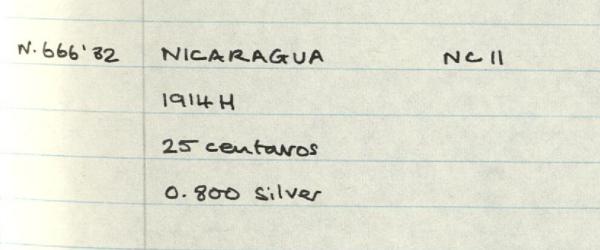 N.666'82 NICARAGUA NC11
1914H
25 centavos
0.800 silver